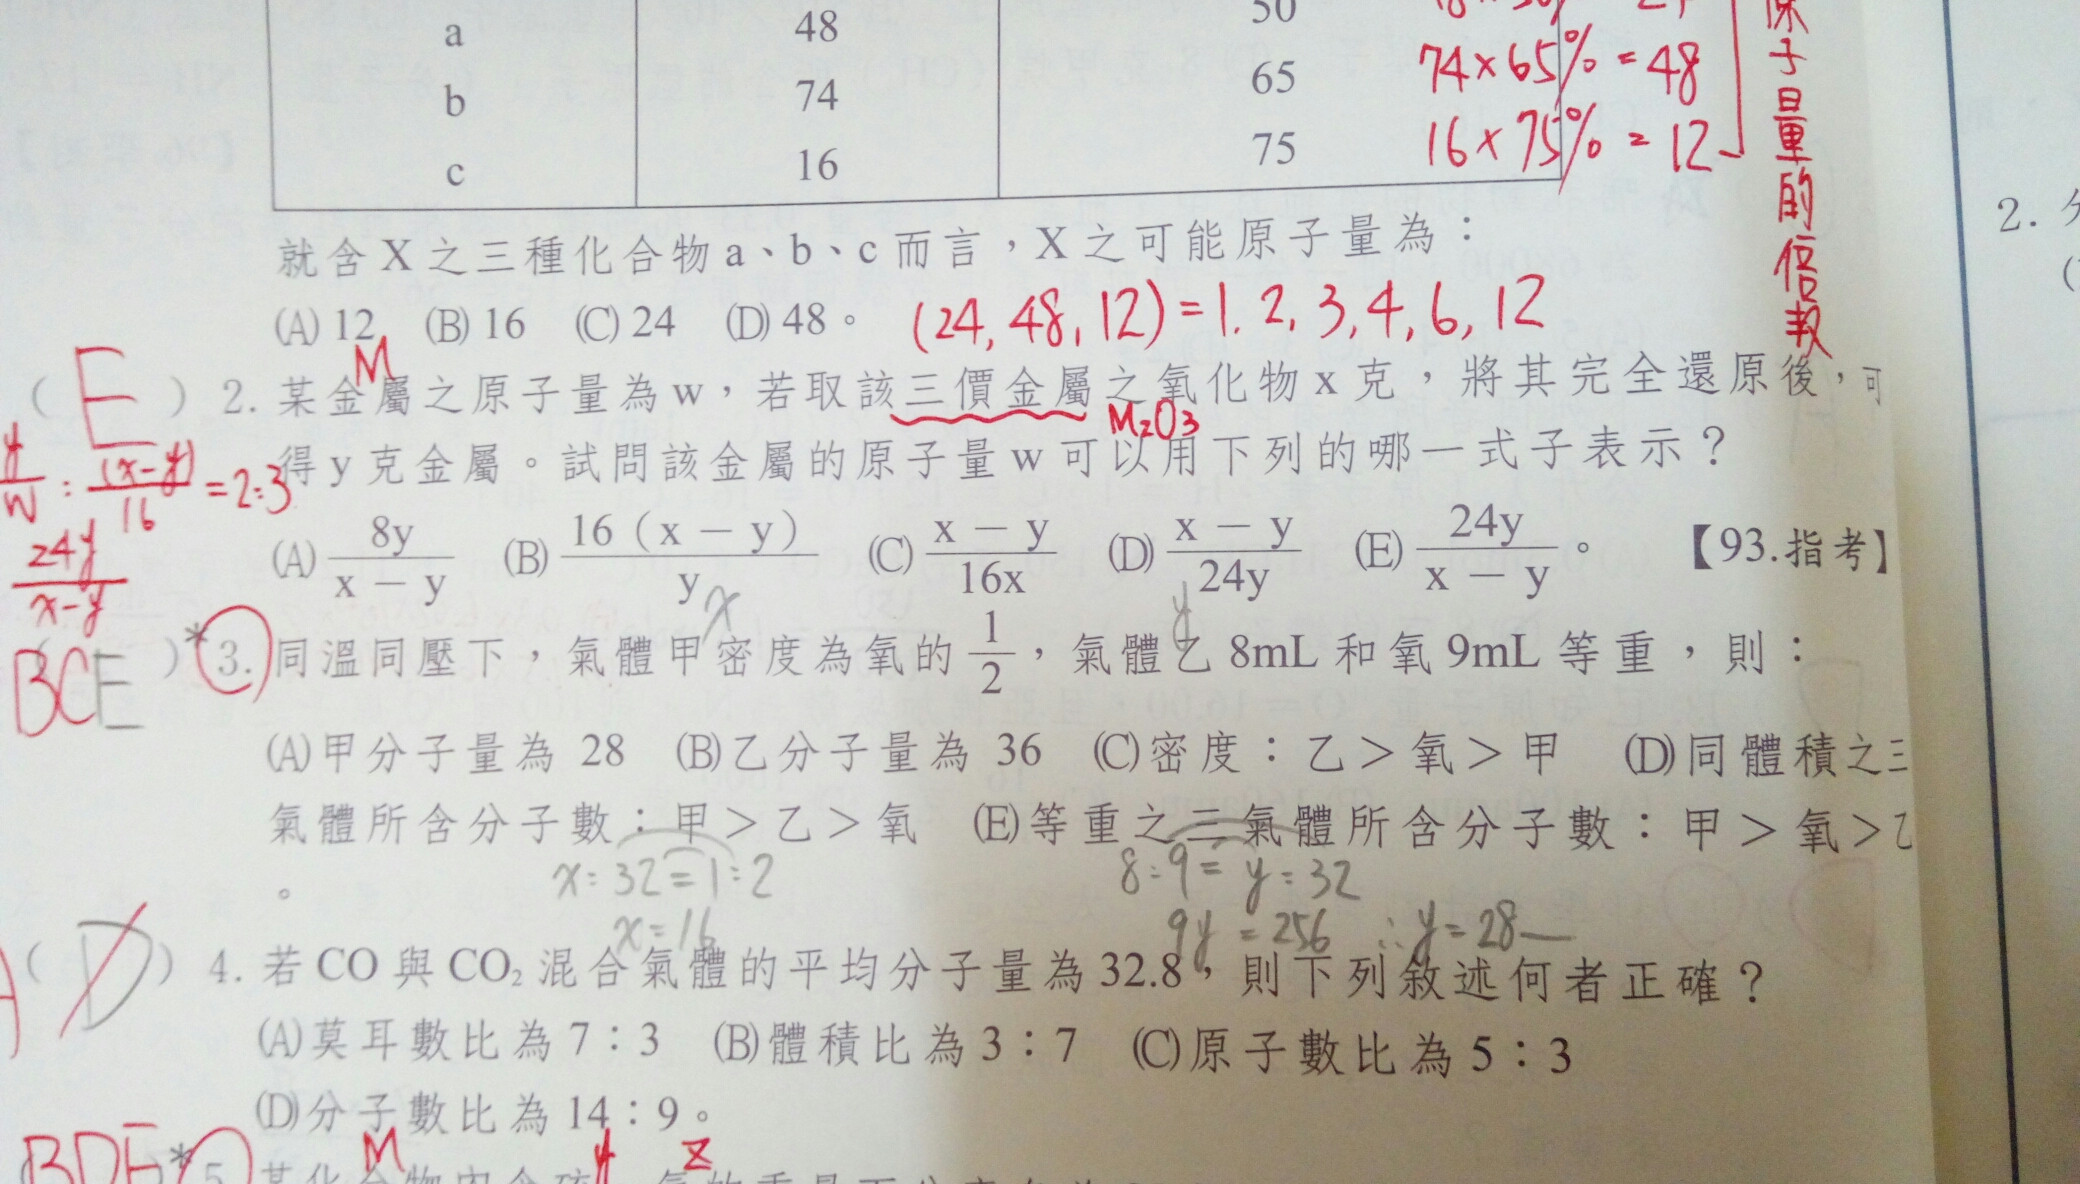 a 48 50
b 74 65 74×65%=48
c 16 75 16×75%=12
原子量的倍數
就含X之三種化合物a、b、c而言，X之可能原子量為：
(A) 12 (B) 16 (C) 24 (D) 48。 (24, 48, 12)=1. 2, 3, 4, 6, 12
M
( E ) 2. 某金屬之原子量為w，若取該三價金屬之氧化物x克，將其完全還原後，可
M₂O₃
得y克金屬。試問該金屬的原子量w可以用下列的哪一式子表示？
y/W : (x-y)/16 =2:3
24y/x-y
(A) 8y/x－y (B) 16（x－y）/y (C) x－y/16x (D) x－y/24y (E) 24y/x－y。 【93.指考】
x y
BCE ) *3. 同溫同壓下，氣體甲密度為氧的1/2，氣體乙8mL和氧9mL等重，則：
(A)甲分子量為 28 (B)乙分子量為 36 (C)密度：乙＞氧＞甲 (D)同體積之三
氣體所含分子數：甲＞乙＞氧 (E)等重之三氣體所含分子數：甲＞氧＞乙
。
x:32=1:2 8:9=y:32
x=16 9y=256 ∴y=28
( D ) 4. 若CO與CO₂混合氣體的平均分子量為32.8，則下列敘述何者正確？
(A)莫耳數比為7：3 (B)體積比為3：7 (C)原子數比為5：3
(D)分子數比為14：9。
M y z
BDE *5.